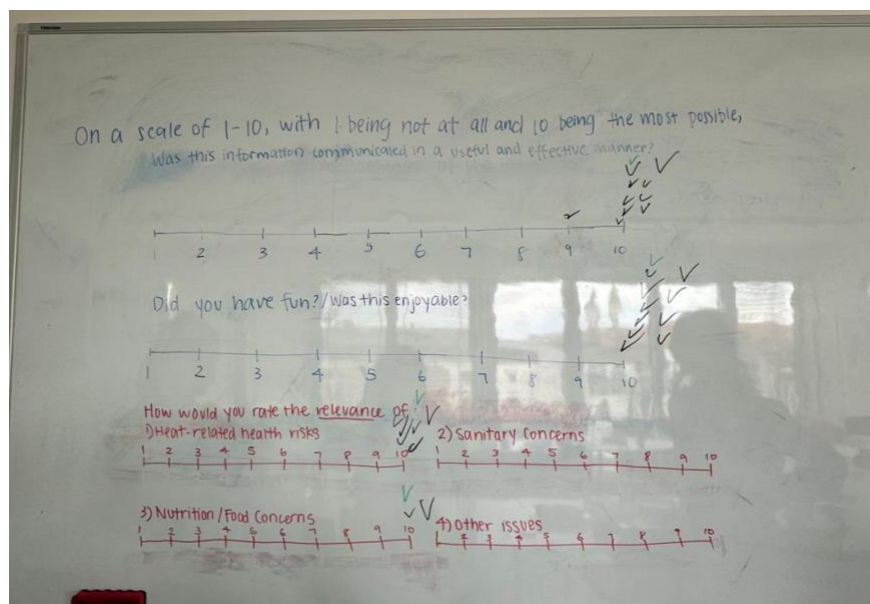 On a scale of 1-10, with 1 being not at all and 10 being the most possible,
Was this information communicated in a useful and effective manner?
1 2 3 4 5 6 7 8 9 10
Did you have fun?/Was this enjoyable?
1 2 3 4 5 6 7 8 9 10
How would you rate the relevance of:
1) Heat-related health risks
1 2 3 4 5 6 7 8 9 10
2) Sanitary Concerns
1 2 3 4 5 6 7 8 9 10
3) Nutrition/Food Concerns
1 2 3 4 5 6 7 8 9 10
4) Other issues
1 2 3 4 5 6 7 8 9 10